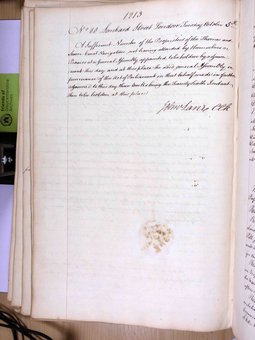 1813
No. 10 Lombard Street London Tuesday October 5th
A Sufficient Number of the Proprietors of the Thames and
Severn Canal Navigation not having attended by themselves or
Proxies at a General Assembly appointed to be holden by adjourn
ment this day and at this place the said general Assembly in
pursuance of the Act of Parliament in that behalf made is further
Adjourned to this day three weeks being the Twenty Sixth Instant
then to be holden at this place
John Lane Clk